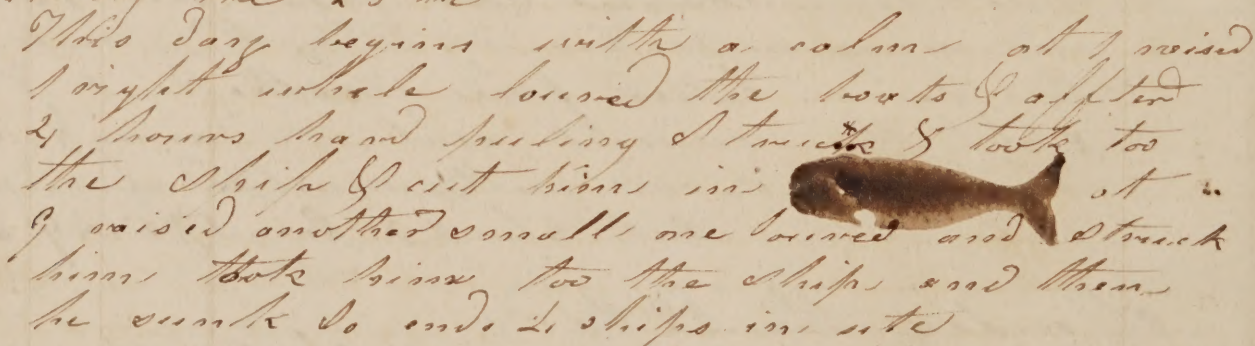 This day begins with a calm at 1 raised
1 right whale loured the boats & affter
4 hours hard puling Struck & took too
the Ship & cut him in at
9 raised another small one loured and Struck
him took him too the Ship and then
he sunk So ends 4 ships in site